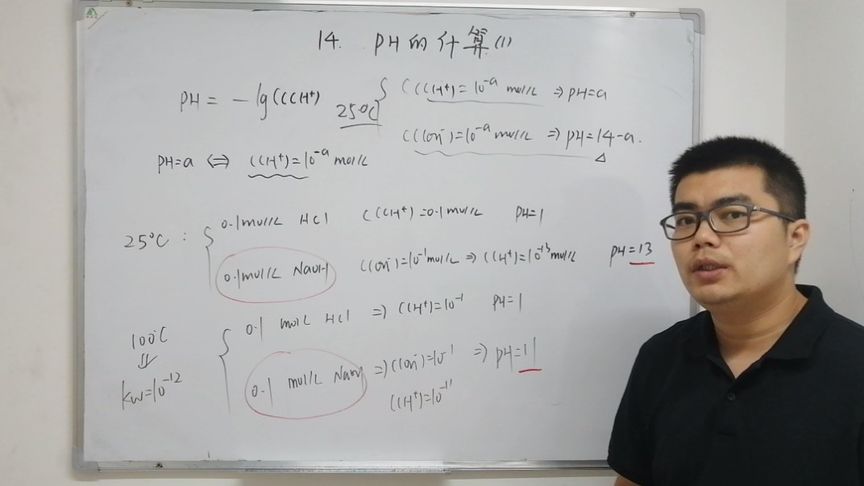 14. PH的计算(1)
PH = -lg(C(H⁺)
25℃ { C(H⁺)=10⁻ᵃ mol/L ⇒ pH=a
C(OH⁻)=10⁻ᵃ mol/L ⇒ pH=14-a.
pH=a ⇔ C(H⁺)=10⁻ᵃ mol/L
25℃ : { 0.1mol/L HCl C(H⁺)=0.1mol/L pH=1
0.1mol/L NaOH C(OH⁻)=10⁻¹mol/L ⇒ C(H⁺)=10⁻¹³mol/L pH=13
100℃ ⇓ Kw=10⁻¹²
{ 0.1 mol/L HCl ⇒ C(H⁺)=10⁻¹ pH=1
0.1 mol/L NaOH ⇒ C(OH⁻)=10⁻¹ ⇒ pH=11
C(H⁺)=10⁻¹¹